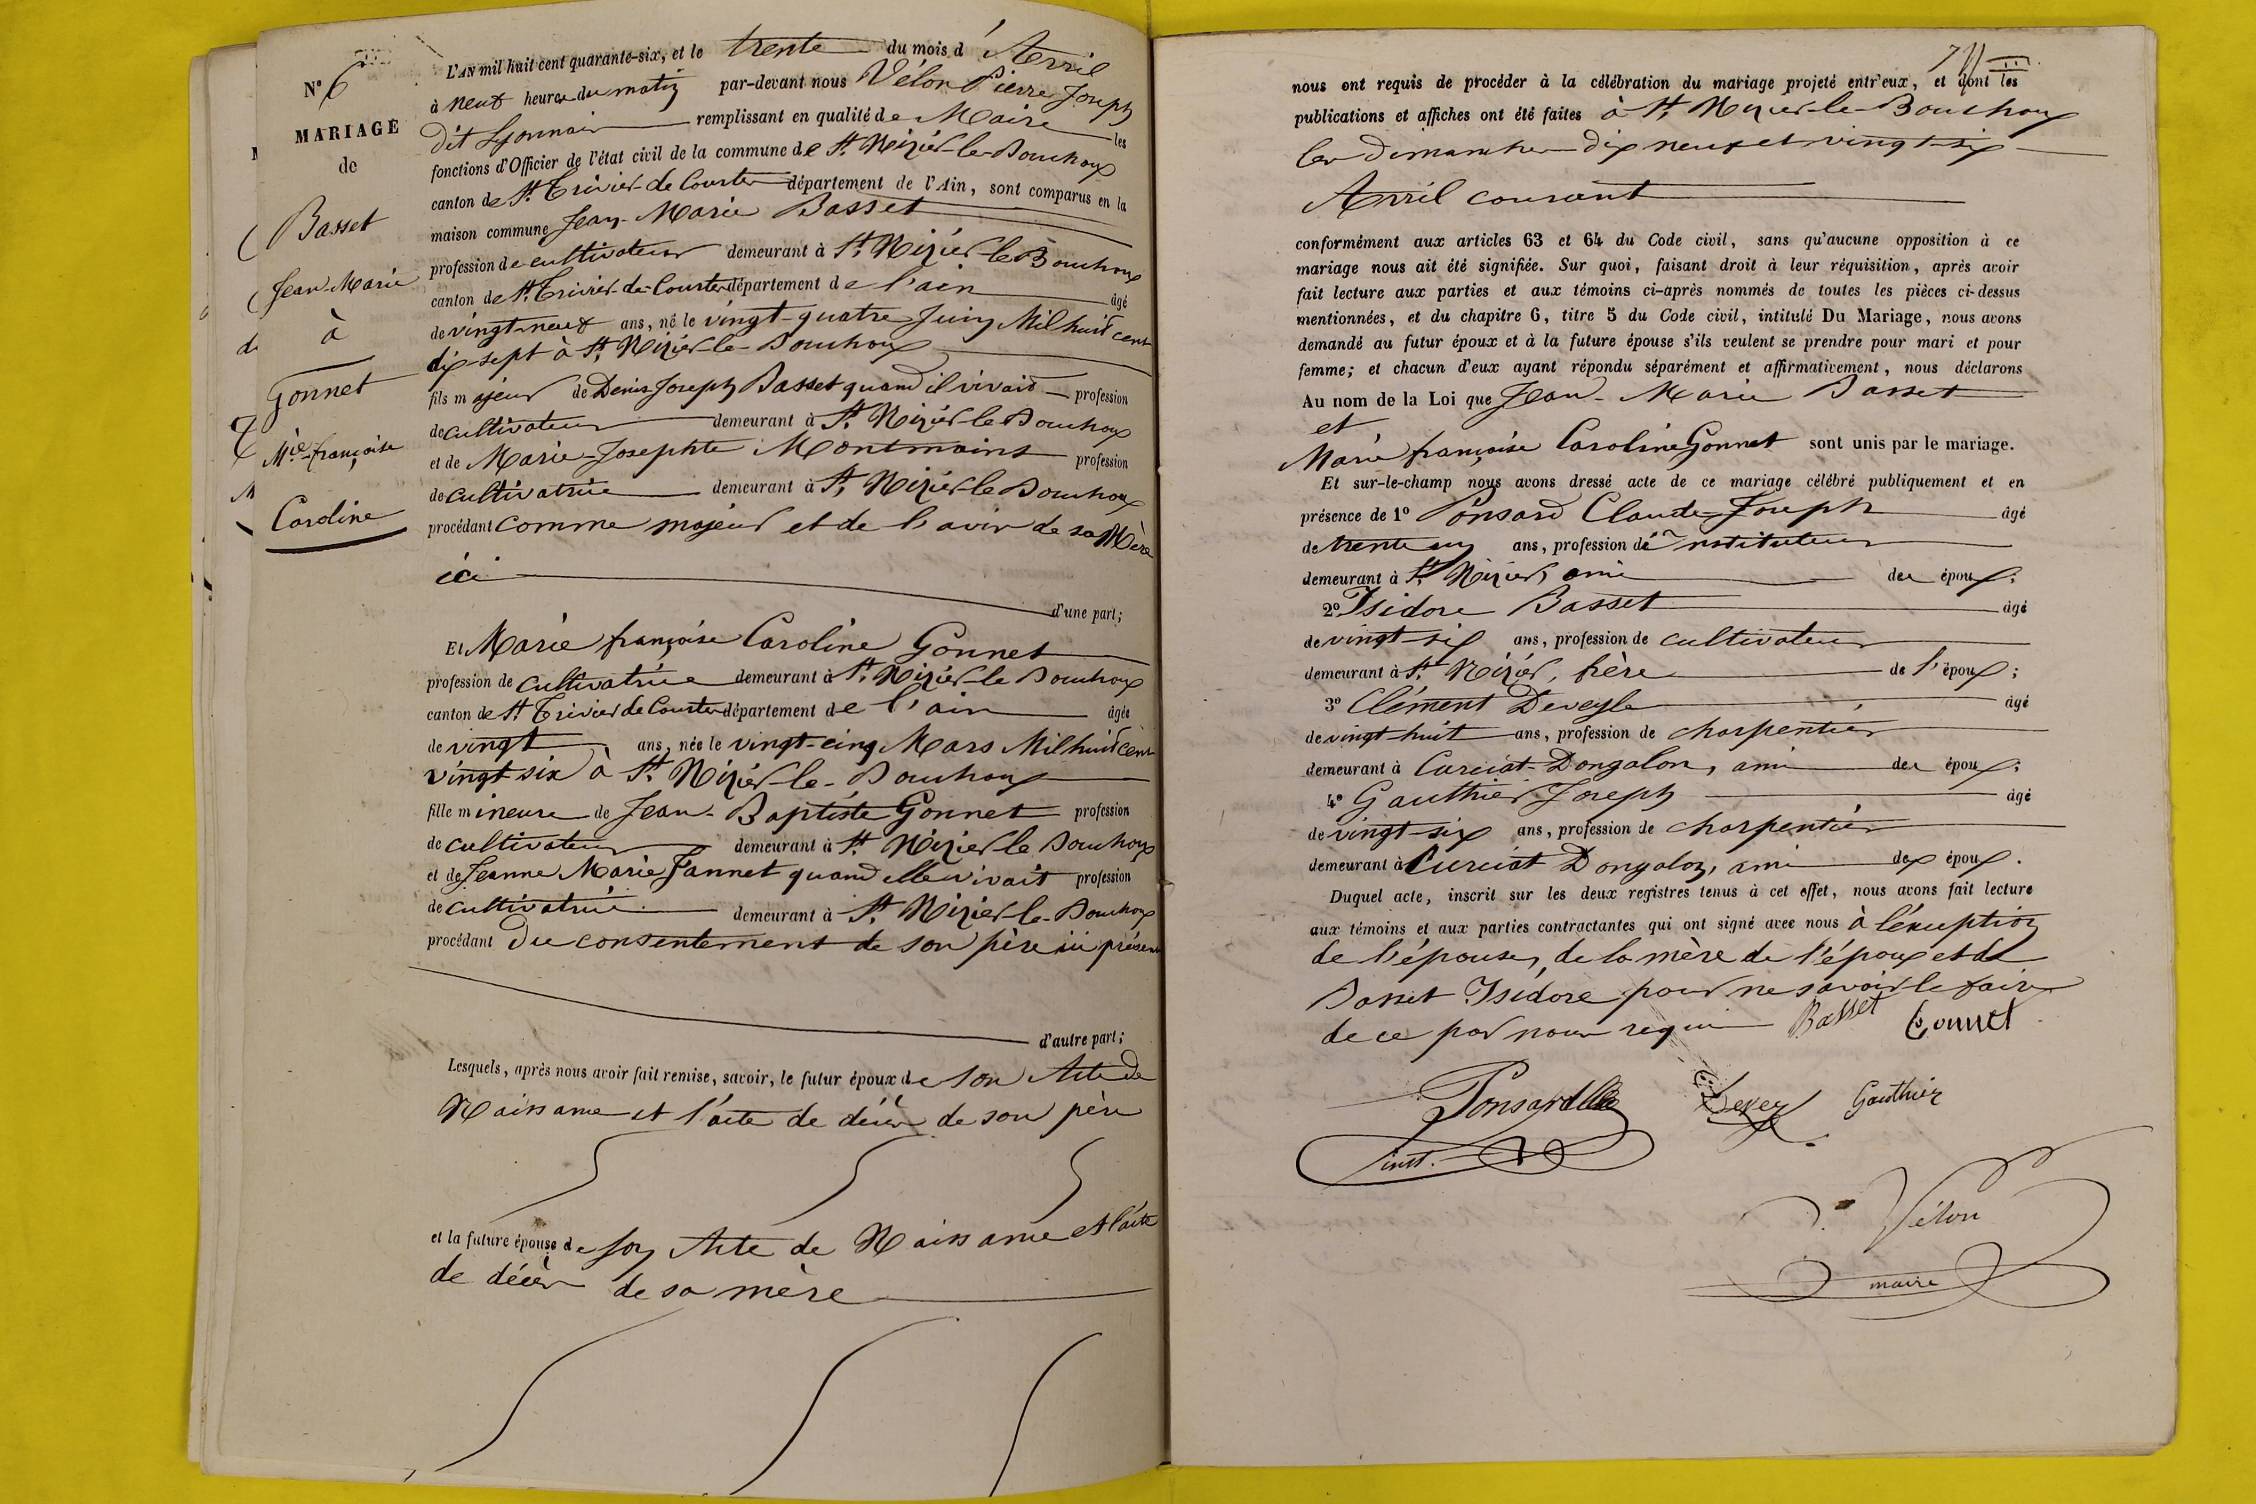 N° 6
MARIAGE
de
Basset
Jean-Marie
à
Gonnet
Mie françoise
Caroline
L'AN mil huit cent quarante-six, et le trente du mois d'Avril
à neuf heures du matin par-devant nous Vélon Pierre Joseph
dit Lyonnais remplissant en qualité de Maire les
fonctions d'Officier de l'état civil de la commune de St Nizier-le-Bouchoux
canton de St Trivier-de-Courtes département de l'Ain, sont comparus en la
maison commune Jean-Marie Basset
profession de cultivateur demeurant à St Nizier-le-Bouchoux
canton de St Trivier-de-Courtes département de l'ain âgé
de vingt-neuf ans, né le vingt-quatre Juin Mil huit cent
dix-sept à St Nizier-le-Bouchoux
fils majeur de Denis Joseph Basset quand il vivait profession
de cultivateur demeurant à St Nizier-le-Bouchoux
et de Marie-Josephte Montmains profession
de cultivatrice demeurant à St Nizier-le-Bouchoux
procédant comme majeur et de l'avis de sa Mère
ici
d'une part;
Et Marie françoise Caroline Gonnet
profession de cultivatrice demeurant à St Nizier-le Bouchoux
canton de St Trivier de Courtes département de l'ain âgée
de vingt ans, née le vingt-cinq Mars Mil huit cent
vingt six à St Nizier-le-Bouchoux
fille mineure de Jean-Baptiste Gonnet profession
de cultivateur demeurant à St Nizier le Bouchoux
et de Jeanne Marie Jannet quand elle vivait profession
de cultivatrice demeurant à St Nizier-le-Bouchoux
procédant du consentement de son père ici présent
d'autre part;
Lesquels, après nous avoir fait remise, savoir, le futur époux de son Acte de
Naissance et l'acte de décès de son père
et la future épouse de son Acte de Naissance et l'acte
de décès de sa mère
nous ont requis de procéder à la célébration du mariage projeté entr'eux, et dont les
publications et affiches ont été faites à St Nizier-le-Bouchoux
les dimanches dix neuf et vingt-six
Avril courant
conformément aux articles 63 et 64 du Code civil, sans qu'aucune opposition à ce
mariage nous ait été signifiée. Sur quoi, faisant droit à leur réquisition, après avoir
fait lecture aux parties et aux témoins ci-après nommés de toutes les pièces ci-dessus
mentionnées, et du chapitre 6, titre 5 du Code civil, intitulé Du Mariage, nous avons
demandé au futur époux et à la future épouse s'ils veulent se prendre pour mari et pour
femme; et chacun d'eux ayant répondu séparément et affirmativement, nous déclarons
Au nom de la Loi que Jean-Marie Basset
et
Marie françoise Caroline Gonnet sont unis par le mariage.
Et sur-le-champ nous avons dressé acte de ce mariage célébré publiquement et en
présence de 1° Ponsard Claude-Joseph âgé
de trente un ans, profession d'instituteur
demeurant à St Nizier, ami des époux;
2° Isidore Basset âgé
de vingt-six ans, profession de cultivateur
demeurant à St Nizier, frère de l'époux;
3° Clément Deveyle âgé
de vingt-huit ans, profession de charpentier
demeurant à Curciat-Dongalon, ami des époux;
4° Gauthier Joseph âgé
de vingt-six ans, profession de charpentier
demeurant à Curciat Dongalon, ami des époux.
Duquel acte, inscrit sur les deux registres tenus à cet effet, nous avons fait lecture
aux témoins et aux parties contractantes qui ont signé avec nous à l'éxception
de l'épouse, de la mère de l'époux et de
Basset Isidore pour ne savoir le faire
de ce par nous requis Basset Gonnet
Ponsard Gauthier
inst.
Vélon
maire